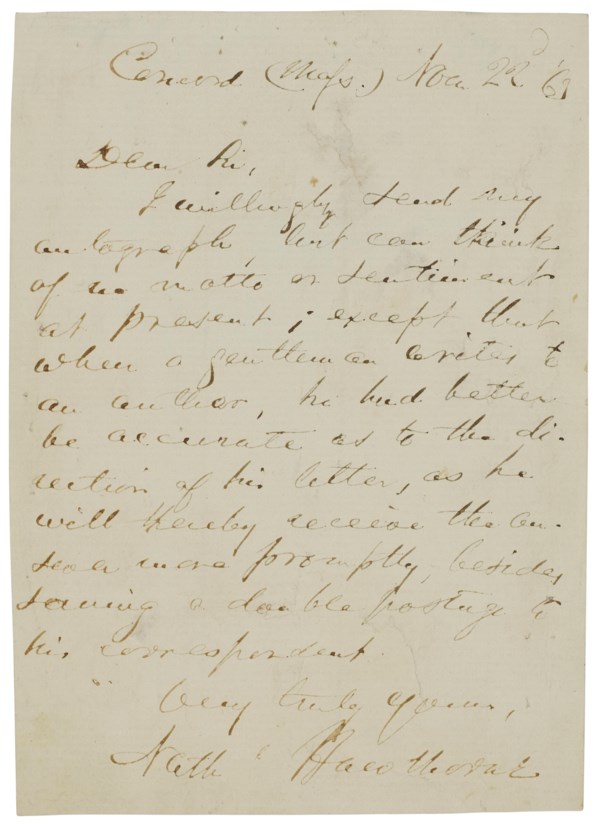 Concord (Mass.) Nov. 22d '63
Dear Sir,
I willingly send my
autograph, but can think
of no motto or sentiment
at present; except that
when a gentleman writes to
an author, he had better
be accurate as to the di-
rection of his letter, as he
will thereby receive the an-
swer more promptly, besides
saving a double postage to
his correspondent.
Very truly yours,
Nathl Hawthorne